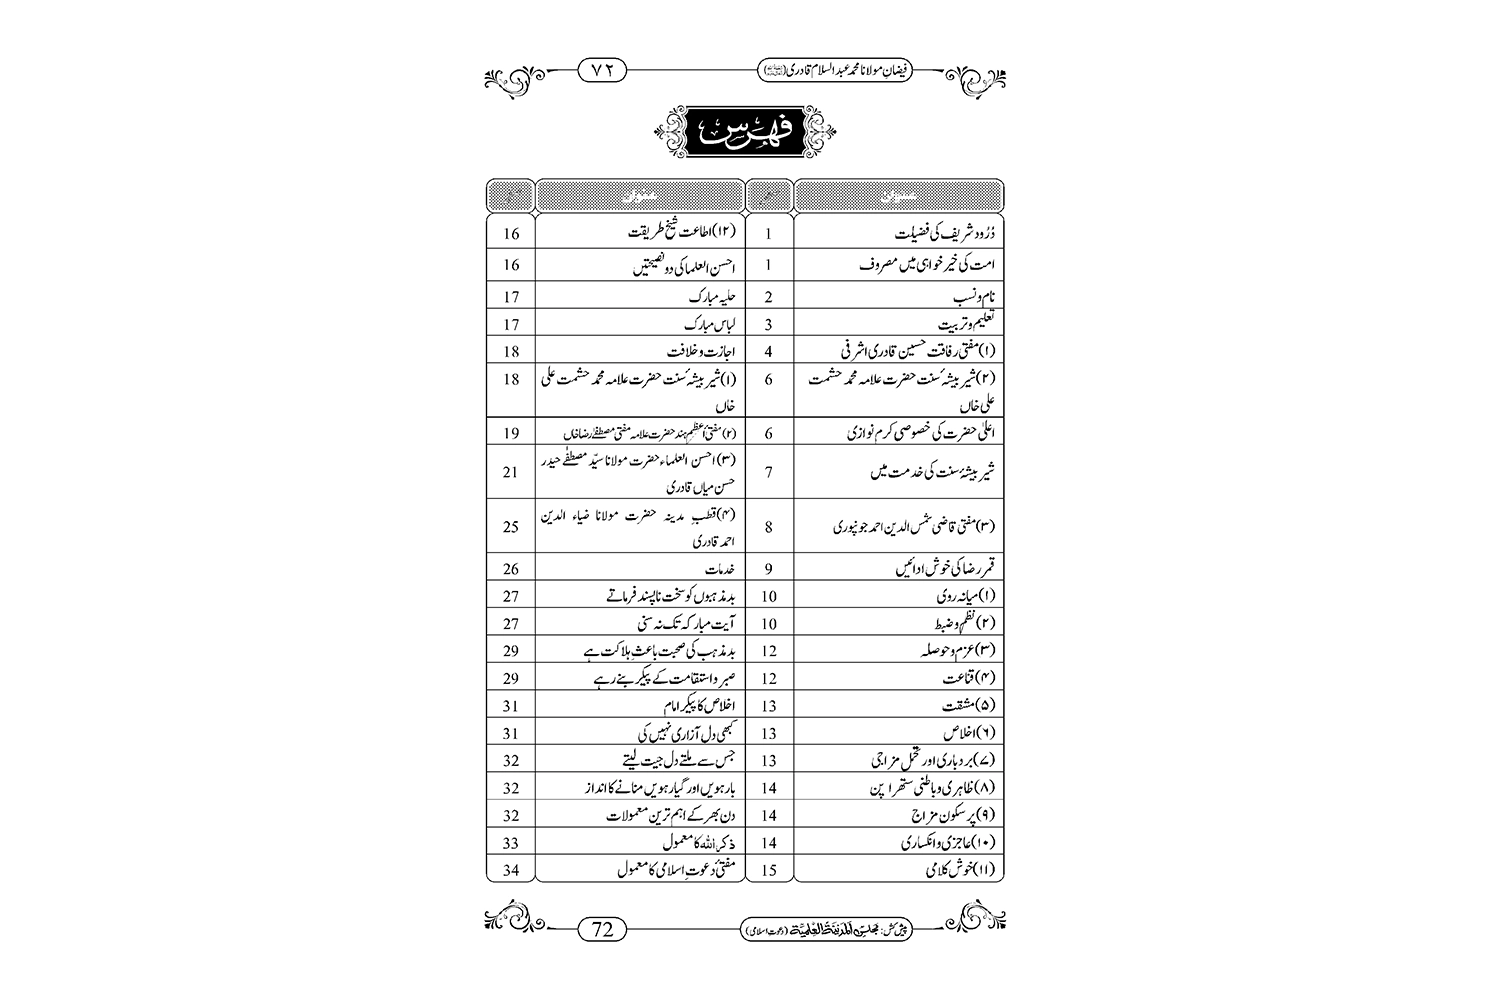 فیضانِ مولانا محمد عبد السلام قادری
۷۲
فہرس
عنوان
عنوان
دُرُود شریف کی فضیلت 1
امت کی خیر خواہی میں مصروف 1
نام و نسب 2
تعلیم و تربیت 3
(۱) مفتی رفاقت حسین قادری اشرفی 4
(۲) شیر بیشۂ سنت حضرت علامہ محمد حشمت 6
علی خاں
اعلیٰ حضرت کی خصوصی کرم نوازی 6
شیر بیشۂ سنت کی خدمت میں 7
(۳) مفتی قاضی شمس الدین احمد جونپوری 8
قمر رضا کی خوش ادائیں 9
(۱) میانہ روی 10
(۲) نظم و ضبط 10
(۳) عزم و حوصلہ 12
(۴) قناعت 12
(۵) مشقت 13
(۶) اخلاص 13
(۷) بردباری اور تحمل مزاجی 13
(۸) ظاہری و باطنی ستھرا پن 14
(۹) پر سکون مزاج 14
(۱۰) عاجزی و انکساری 14
(۱۱) خوش کلامی 15
(۱۲) اطاعت شیخ طریقت 16
احسن العلما کی دو نصیحتیں 16
حلیہ مبارک 17
لباس مبارک 17
اجازت و خلافت 18
(۱) شیر بیشۂ سنت حضرت علامہ محمد حشمت علی 18
خاں
(۲) مفتیٔ اعظمِ ہند حضرت علامہ مفتی مصطفےٰ رضا خاں 19
(۳) احسن العلماء حضرت مولانا سیّد مصطفےٰ حیدر 21
حسن میاں قادری
(۴) قطبِ مدینہ حضرت مولانا ضیاء الدین 25
احمد قادری
خدمات 26
بد مذہبوں کو سخت ناپسند فرماتے 27
آیت مبارکہ تک نہ سنی 27
بد مذہب کی صحبت باعثِ ہلاکت ہے 29
صبر و استقامت کے پیکر بنے رہے 29
اخلاص کا پیکر امام 31
کبھی دل آزاری نہیں کی 31
جس سے ملتے دل جیت لیتے 32
بارہویں اور گیارہویں منانے کا انداز 32
دن بھر کے اہم ترین معمولات 32
ذکر اللہ کا معمول 33
مفتیٔ دعوتِ اسلامی کا معمول 34
پیش کش: مجلس المدینۃ العلمیۃ (دعوتِ اسلامی)
72